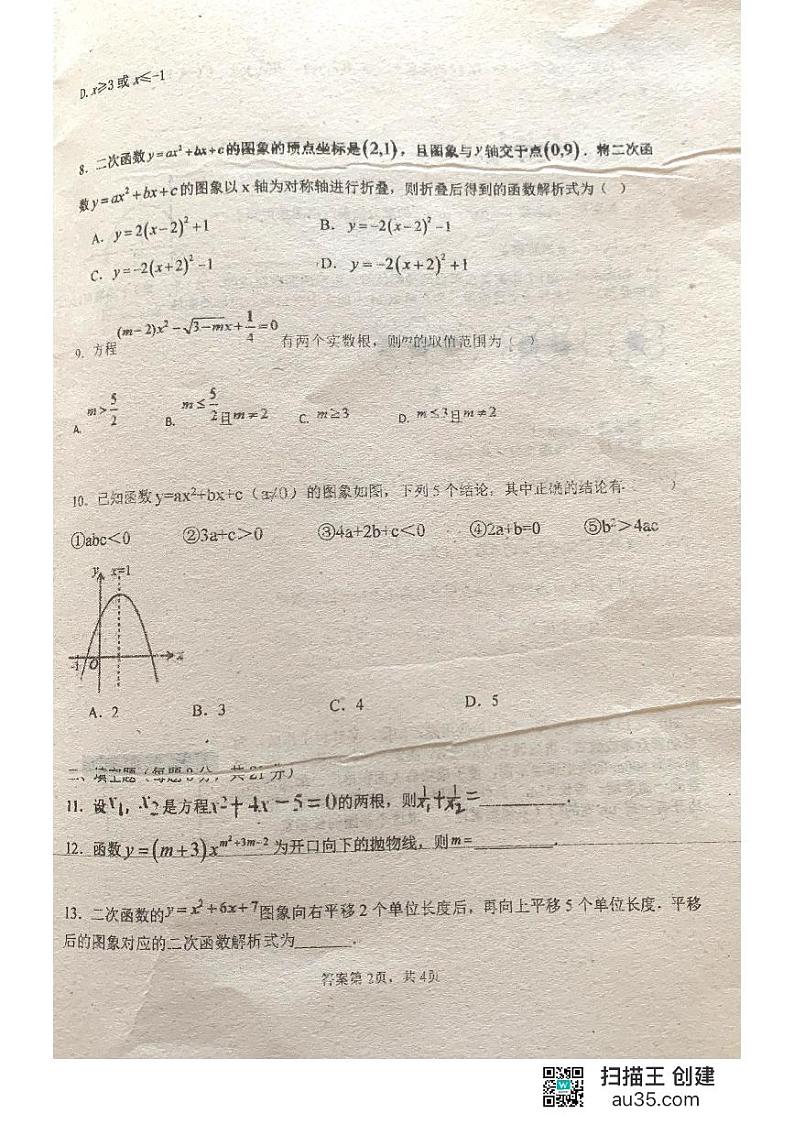 D. x≥3或x≤-1
8. 二次函数y=ax²+bx+c的图象的顶点坐标是(2,1)，且图象与y轴交于点(0,9)．将二次函
数y=ax²+bx+c的图象以x轴为对称轴进行折叠，则折叠后得到的函数解析式为（ ）
A. y=2(x-2)²+1 B. y=-2(x-2)²-1
C. y=-2(x+2)²-1 D. y=-2(x+2)²+1
9. 方程(m-2)x²-√(3-m)x+1/4=0有两个实数根，则m的取值范围为（ ）
A. m>5/2 B. m≤5/2且m≠2 C. m≥3 D. m≤3且m≠2
10. 已知函数y=ax²+bx+c（a≠0）的图象如图，下列5个结论，其中正确的结论有 ）
①abc＜0 ②3a+c＞0 ③4a+2b+c＜0 ④2a+b=0 ⑤b²＞4ac
y x=1
-1 O x
A. 2 B. 3 C. 4 D. 5
二、填空题（每题3分，共21分）
11. 设x₁，x₂是方程x²+4x-5=0的两根，则1/x₁+1/x₂=________.
12. 函数y=(m+3)x^(m²+3m-2)为开口向下的抛物线，则m=________.
13. 二次函数的y=x²+6x+7图象向右平移2个单位长度后，再向上平移5个单位长度．平移
后的图象对应的二次函数解析式为______.
答案第2页，共4页
扫描王 创建
au35.com